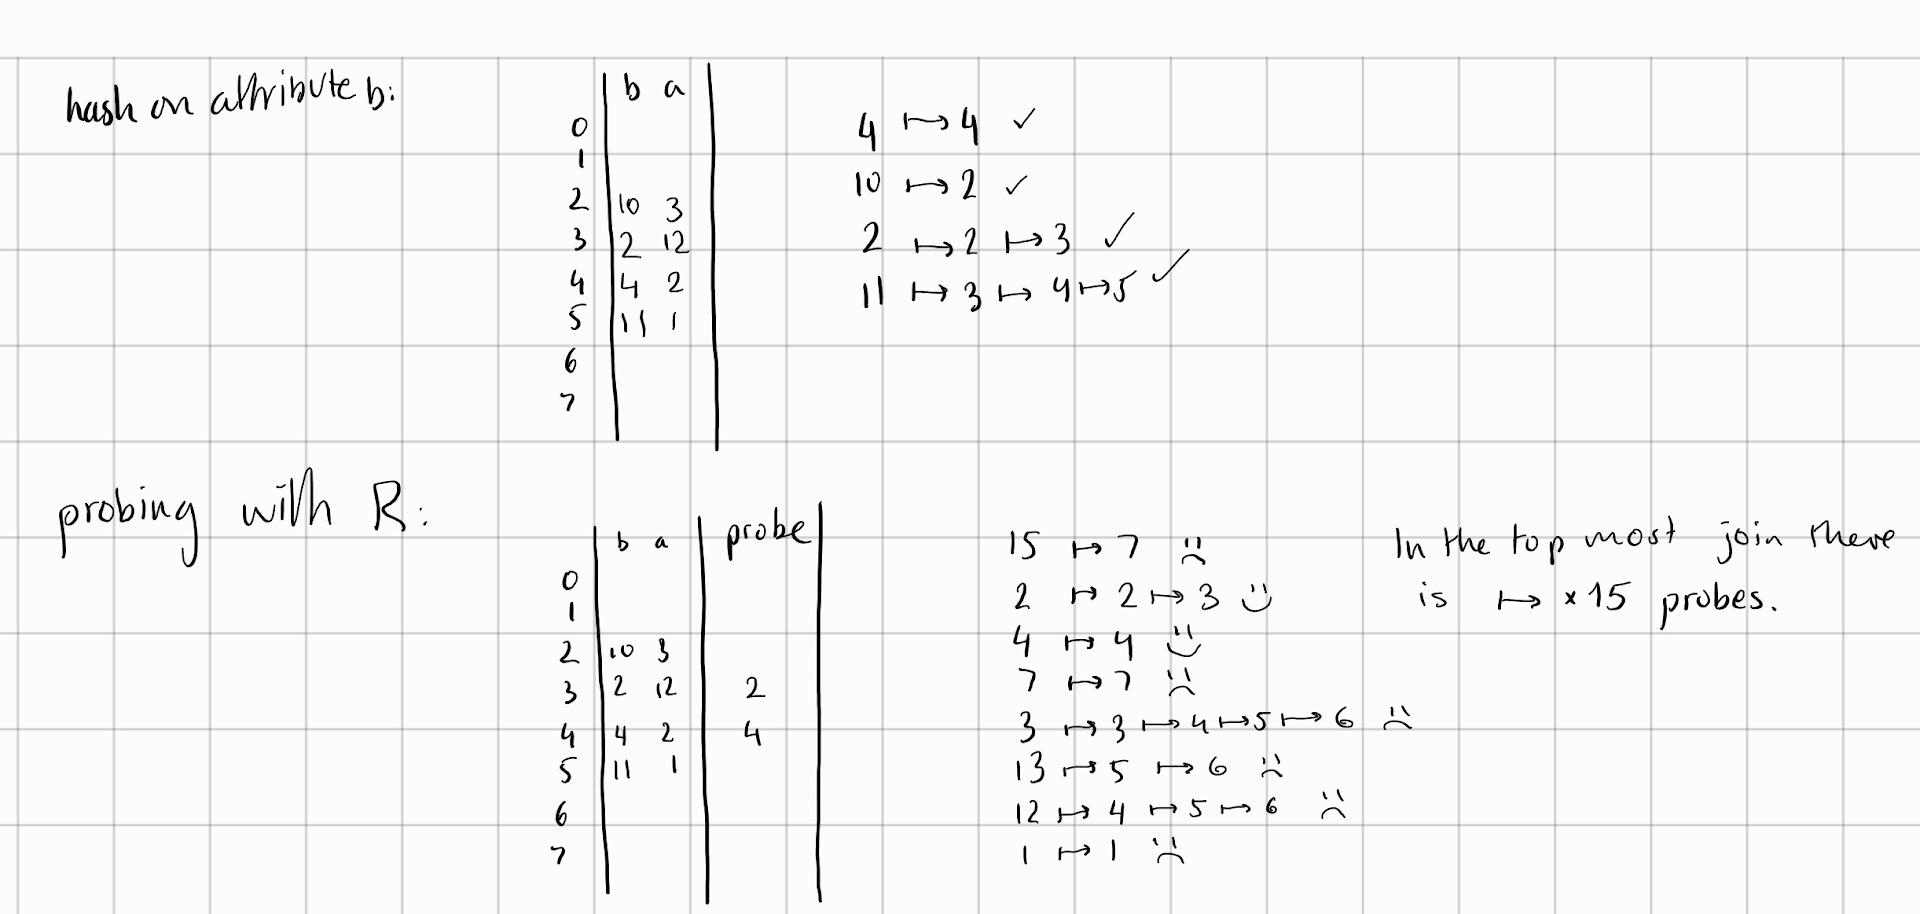 hash on attribute b:
b a
0
1
2 10 3
3 2 12
4 4 2
5 11 1
6
7
4 ↦ 4 ✓
10 ↦ 2 ✓
2 ↦ 2 ↦ 3 ✓
11 ↦ 3 ↦ 4 ↦ 5 ✓
probing with R:
b a probe
0
1
2 10 3
3 2 12 2
4 4 2 4
5 11 1
6
7
15 ↦ 7 ☹
2 ↦ 2 ↦ 3 ☺
4 ↦ 4 ☺
7 ↦ 7 ☹
3 ↦ 3 ↦ 4 ↦ 5 ↦ 6 ☹
13 ↦ 5 ↦ 6 ☹
12 ↦ 4 ↦ 5 ↦ 6 ☹
1 ↦ 1 ☹
In the top most join there
is ↦ × 15 probes.